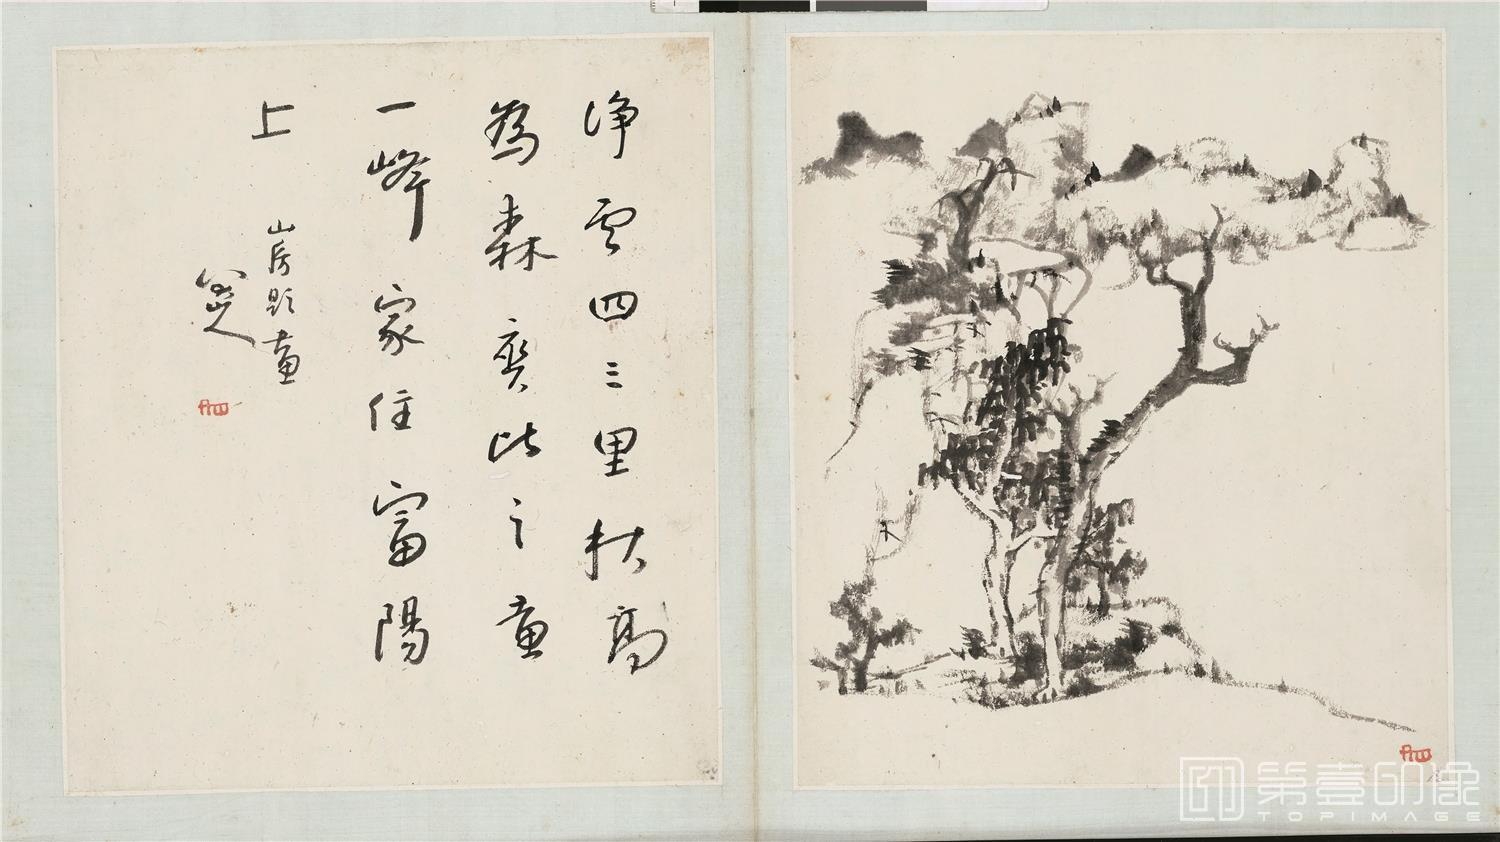 净云四三里秋高
為森爽比之画
一峰家住富陽
上
山房題画
八大
第壹印像
TOPIMAGE